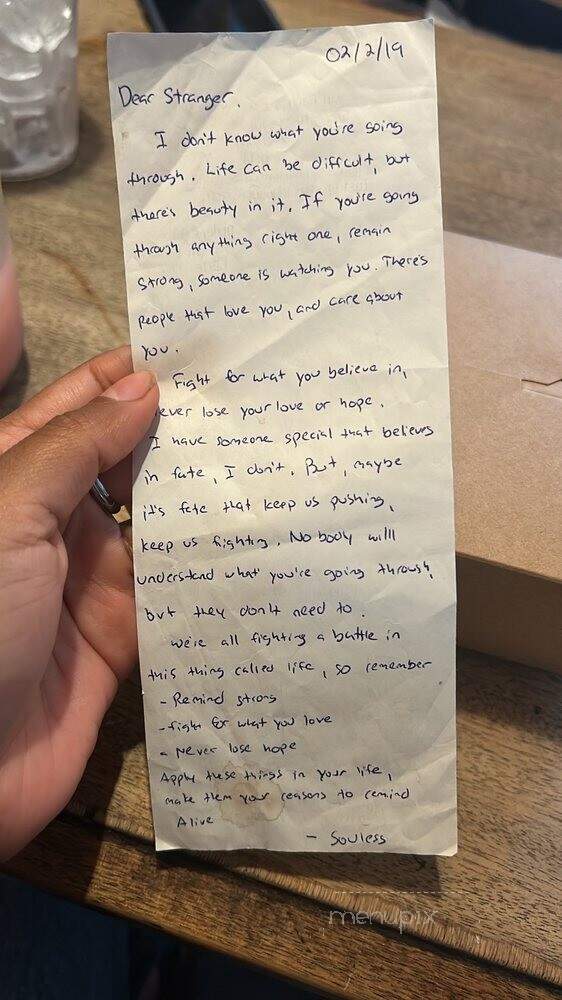 02/2/19
Dear Stranger,
I don't know what you're going
through. Life can be difficult, but
there's beauty in it. If you're going
through anything right one, remain
strong, someone is watching you. There's
people that love you, and care about
you.
Fight for what you believe in,
ever lose your love or hope.
I have someone special that believes
in fate, I don't. But, maybe
it's fate that keep us pushing,
keep us fighting. No body willl
understand what you're going through,
but they don't need to.
we're all fighting a battle in
this thing called life, so remember
- Remind strong
- fight for what you love
- Never lose hope
Apply these things in your life,
make them your reasons to remind
Alive
- Souless
menupix